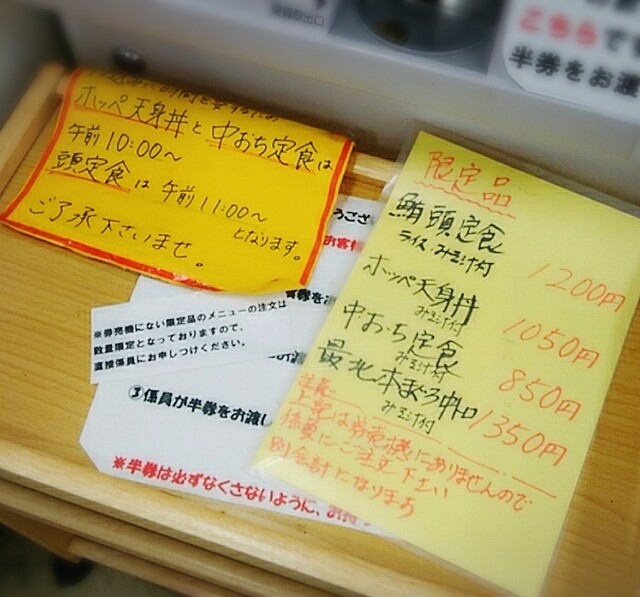 現金取出口
こちらで
半券をお渡
ホッペ天身丼と中おち定食は
午前10:00～
頭定食は午前11:00～
となります。
ご了承下さいませ。
限定品
鮪頭定食
ライス・みそ汁付
1200円
ホッペ天身丼
みそ汁付
1050円
中おち定食
みそ汁付
850円
みそ汁付
1350円
上記は券売機にありませんので
係員にご注文下さい
別会計になります
※券売機にない限定品のメニューの注文は
数量限定となっておりますので、
直接係員にお申しつけください。
③係員が半券をお渡し
※半券は必ずなくさないように、お持ち